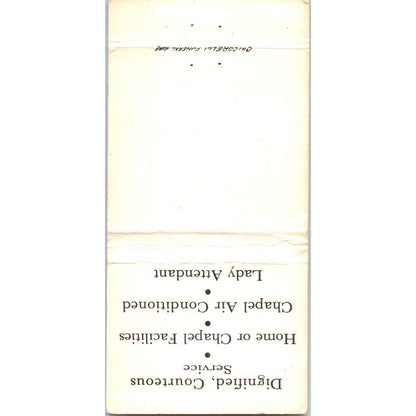 Dignified, Courteous
Service
•
Home or Chapel Facilities
•
Chapel Air Conditioned
•
Lady Attendant
FUNERAL